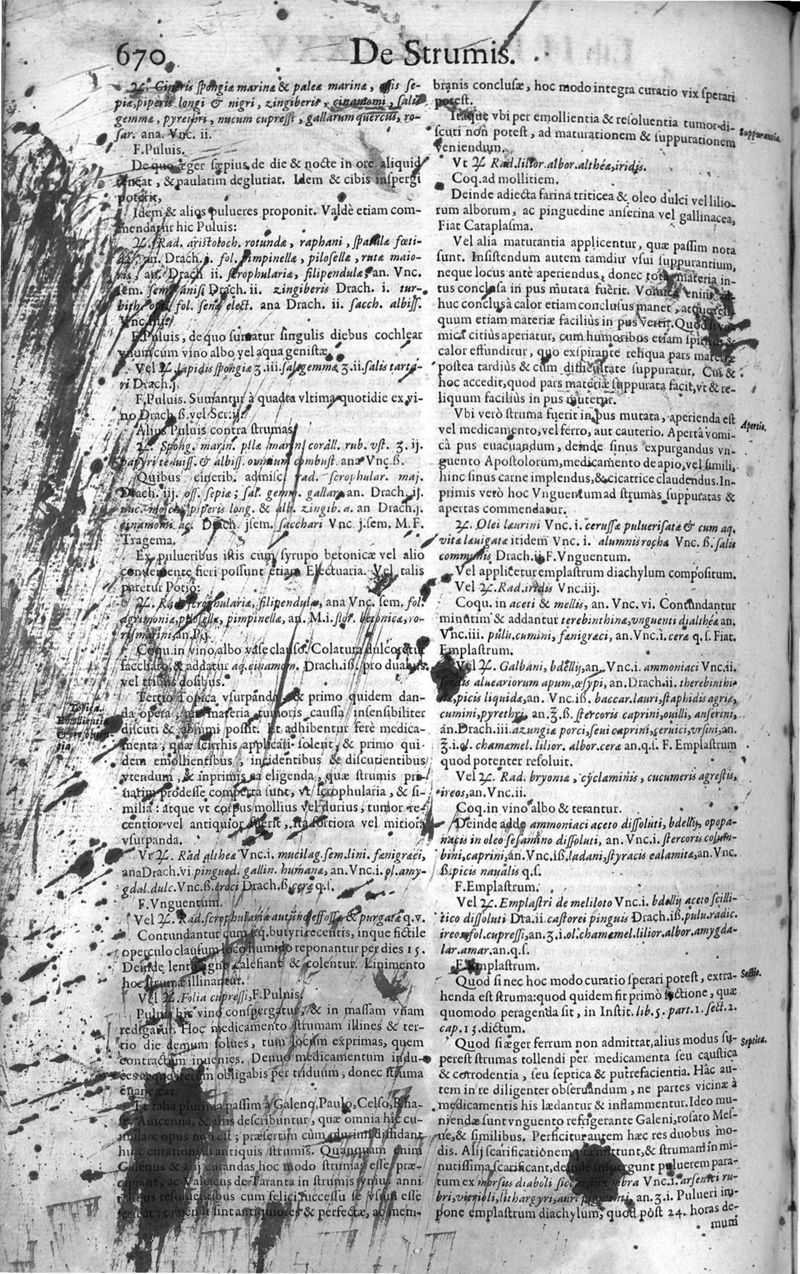 670 De Strumis.
♃. Cineris spongiæ marinæ & paleæ marinæ, ossis se-
piæ, piperis longi & nigri, zingiberis, cinamomi, salis
gemmæ, pyretri, nucum cupressi, gallarum quercus, ro-
sar. ana. Vnc. ii.
F. Puluis.
De quo æger sæpius de die & nocte in ore aliquid
teneat, & paulatim deglutiat. Idem & cibis inspergi
poterit,
Idem & alios pulueres proponit. Valdè etiam com-
mendatur hic Puluis:
♃. Rad. aristoloch. rotundæ, raphani, spatulæ fœti-
dæ, an. Drach. j. fol. pimpinellæ, pilosellæ, rutæ maio-
ris, an. Drach ii. scrophulariæ, filipendulæ an. Vnc.
sem. sem. anisi Drach. ii. zingiberis Drach. i. tur-
bith. fol. senæ elect. ana Drach. ii. sacch. albiss.
F. Puluis, de quo sumatur singulis diebus cochlear
vnum cum vino albo vel aqua genistæ.
Vel ♃ lapidis spongiæ ʒ.iii. sal. gemmæ ʒ.ii. salis tarta-
ri Drach. j.
F. Puluis. Sumatur à quadra vltima quotidie ex vi-
no Drach. ß. vel Scr. ij.
Alius Puluis contra strumas.
♃. Spong. marin. pilæ marin. corall. rub. vst. ʒ. ij.
papyri tenuiss. & albiss. omnium combust. ana Vnc. ß.
Quibus cinerib. admisc. rad. scrophular. maj.
Drach. iij. oss. sepiæ, sal. gemm. gallar. an. Drach. ij.
nuc. mosch. piperis long. & alb. zingib. a. an Drach. j.
cinamomi ac. Drach. jsem. sacchari Vnc j. sem. M. F.
Tragema.
Ex pulueribus istis cum syrupo betonicæ vel alio
conueniente fieri possunt etiam Electuaria. Vel talis
paretur Potio:
♃. Rad. scrophulariæ, filipendulæ, ana Vnc. sem. fol.
agrimoniæ, pilosellæ, pimpinellæ, an. M. i. flor. betonicæ, ro-
rismarini, an. P. j.
Coqu. in vino, albo vase clauso. Colatura dulcoretur
saccharo, & addatur aq. cinamom. Drach. iß. pro duabus
vel tribus dosibus.
Tertiò Topica vsurpanda, & primo quidem dan-
da opera, vt materia tumoris caussa insensibiliter
discuti & absumi possit. Et adhibentur ferè medica-
menta, quæ scirrhis applicari solent, & primo qui-
dem emollientibus, incidentibus & discutientibus
vtendum, & inprimis ea eligenda, quæ strumis pri-
uatim prodesse comperta sunt, vt scrophularia, & si-
milia: atque vt corpus mollius vel durius, tumor re-
centior vel antiquior fuerit, ita fortiora vel mitiora
vsurpanda.
Vt ♃. Rad altheæ Vnc. i. mucilag. sem. lini. fœnigræci,
ana Drach. vi pinguod. gallin. humanæ, an. Vnc. i. ol. amy-
gdal. dulc. Vnc. ß. croci Drach. ß. ceræ q. s.
F. Vnguentum.
Vel ♃. Rad. scrophulariæ autumno effossæ & purgatæ q. v.
Contundantur cum aq. butyri recentis, inque fictile
operculo clausum loco humido reponantur per dies 15.
Deinde lento igne calefiant & colentur. Linimento
hoc struma illinantur.
Vel ♃. Folia cupressi, F. Pulnis.
Puluis hic vino conspergatur, & in massam vnam
redigatur. Hoc medicamento strumam illines & ter-
tio die demum solues, tum locum exprimas, quem
contractum inuenies. Denuo medicamentum indu-
ces obligabis per triduum, donec struma
euanescat.
Et talia plurima passim à Galeno, Paulo, Celso, Rha-
se, Auicenna, & aliis describuntur, quæ omnia hic cu-
mulare opus non est; præsertim cùm plurimi diffidant
huic curationi in antiquis strumis. Quanquam enim
Galenus & alij curandas hoc modo strumas esse præ-
cipiant, ac Valescus de Taranta in strumis vnius anni
resoluentibus cum felici successu se vsum esse
tamen si sint antiquiores & perfectæ, ac mem-
Topica.
Emollientia
branis conclusæ, hoc modo integra curatio vix sperari
potest.
Itaque vbi per emollientia & resoluentia tumor di-
scuti non potest, ad maturationem & suppurationem
veniendum.
Vt ♃. Rad. lilior. albor. altheæ, iridis.
Coq. ad mollitiem.
Deinde adiecta farina triticea & oleo dulci vel lilio-
rum alborum, ac pinguedine anserina vel gallinacea,
Fiat Cataplasma.
Vel alia maturantia applicentur, quæ passim nota
sunt. Insistendum autem tamdiu vsui suppurantium,
neque locus antè aperiendus, donec tota materia in-
tus conclusa in pus mutata fuerit. Vomica enim ad-
huc conclusa calor etiam conclusus manet,
quum etiam materiæ facilius in pus vertit. Quod si vo-
mica citiùs aperiatur, cum humoribus etiam spiritus &
calor effunditur, quo exspirante reliqua pars materiæ
postea tardius & cum difficultate suppuratur. Cui &
hoc accedit, quod pars materiæ suppurata facit, vt & re-
liquum facilius in pus mutetur.
Vbi verò struma fuerit in pus mutata, aperienda est
vel medicamento, vel ferro, aut cauterio. Aperta vomi-
câ pus euacuandum, deinde sinus expurgandus vn-
guento Apostolorum, medicamento de apio, vel simili,
hinc sinus carne implendus, & cicatrice claudendus. In-
primis verò hoc Vnguentum ad strumas suppuratas &
apertas commendatur.
♃. Olei laurini Vnc. i. cerussæ puluerisatæ & cum aq.
vitæ lauigatæ itidem Vnc. i. aluminis rochæ Vnc. ß. salis
communis Drach. ii. F. Vnguentum.
Vel applicetur emplastrum diachylum compositum.
Vel ♃. Rad. iridis Vnc. iij.
Coqu. in aceti & mellis, an. Vnc. vi. Contundantur
minutim & addantur terebinthinæ, vnguenti dialtheæ an.
Vnc. iii. pulu. cumini, fœnigræci, an. Vnc. i. ceræ q. s. Fiat.
Emplastrum.
Vel ♃. Galbani, bdellij, an. Vnc. i. ammoniaci Vnc. ii.
sordis alueariorum apum, œsypi, an. Drach. ii. therebinthi-
næ, picis liquidæ, an. Vnc. iß. baccar. lauri, staphidis agriæ,
cumini, pyrethri, an. ʒ. ß. stercoris caprini, ouilli, anserini,
an. Drach. iii. azungiæ porci, seui caprini, ceruici, vrsini, an.
ʒ. i. ol. chamæmel. lilior. albor. ceræ an. q. s. F. Emplastrum
quod potenter resoluit.
Vel ♃. Rad. bryoniæ, cyclaminis, cucumeris agrestis,
ireos, an. Vnc. ii.
Coq. in vino albo & terantur.
Deinde adde ammoniaci aceto dissoluti, bdellij, opopa-
nacis in oleo sesamino dissoluti, an. Vnc. i. stercoris colum-
bini, caprini, an. Vnc. iß, ladani, styracis calamitæ, an. Vnc.
ß. picis naualis q. s.
F. Emplastrum.
Vel ♃. Emplastri de meliloto Vnc. i. bdellij aceto scilli-
tico dissoluti Dra. ii. castorei pinguis Drach. iß. pulu. radic.
ireos, fol. cupressi, an. ʒ. i. ol. chamæmel. lilior. albor. amygda-
lar. amar. an. q. s.
F. Emplastrum.
Quod si nec hoc modo curatio sperari potest, extra-
henda est struma: quod quidem fit primò sectione, quæ
quomodo peragenda sit, in Instit. lib. 5. part. 1. sect. 2.
cap. 13. dictum.
Quod si æger ferrum non admittat, alius modus su-
perest strumas tollendi per medicamenta seu caustica
& corrodentia, seu septica & putrefacientia. Hac au-
tem in re diligenter obseruandum, ne partes vicinæ à
medicamentis his lædantur & inflammentur. Ideo mu-
niendæ sunt vnguento refrigerante Galeni, rosato Mes-
uæ, & similibus. Perficitur autem hæc res duobus mo-
dis. Alij scarificationem & strumam mi-
nutissimà scarificant, deinde inspergunt puluerem para-
tum ex morsus diaboli siccæ in vmbra Vnc. i. arsenici ru-
bri, vitrioli, lithargyri, auri pigmenti, an. ʒ. i. Pulueri im-
pone emplastrum diachylum, quod pòst 24. horas de-
mum
Suppurantia.
Apertio.
Sectio.
Septica.